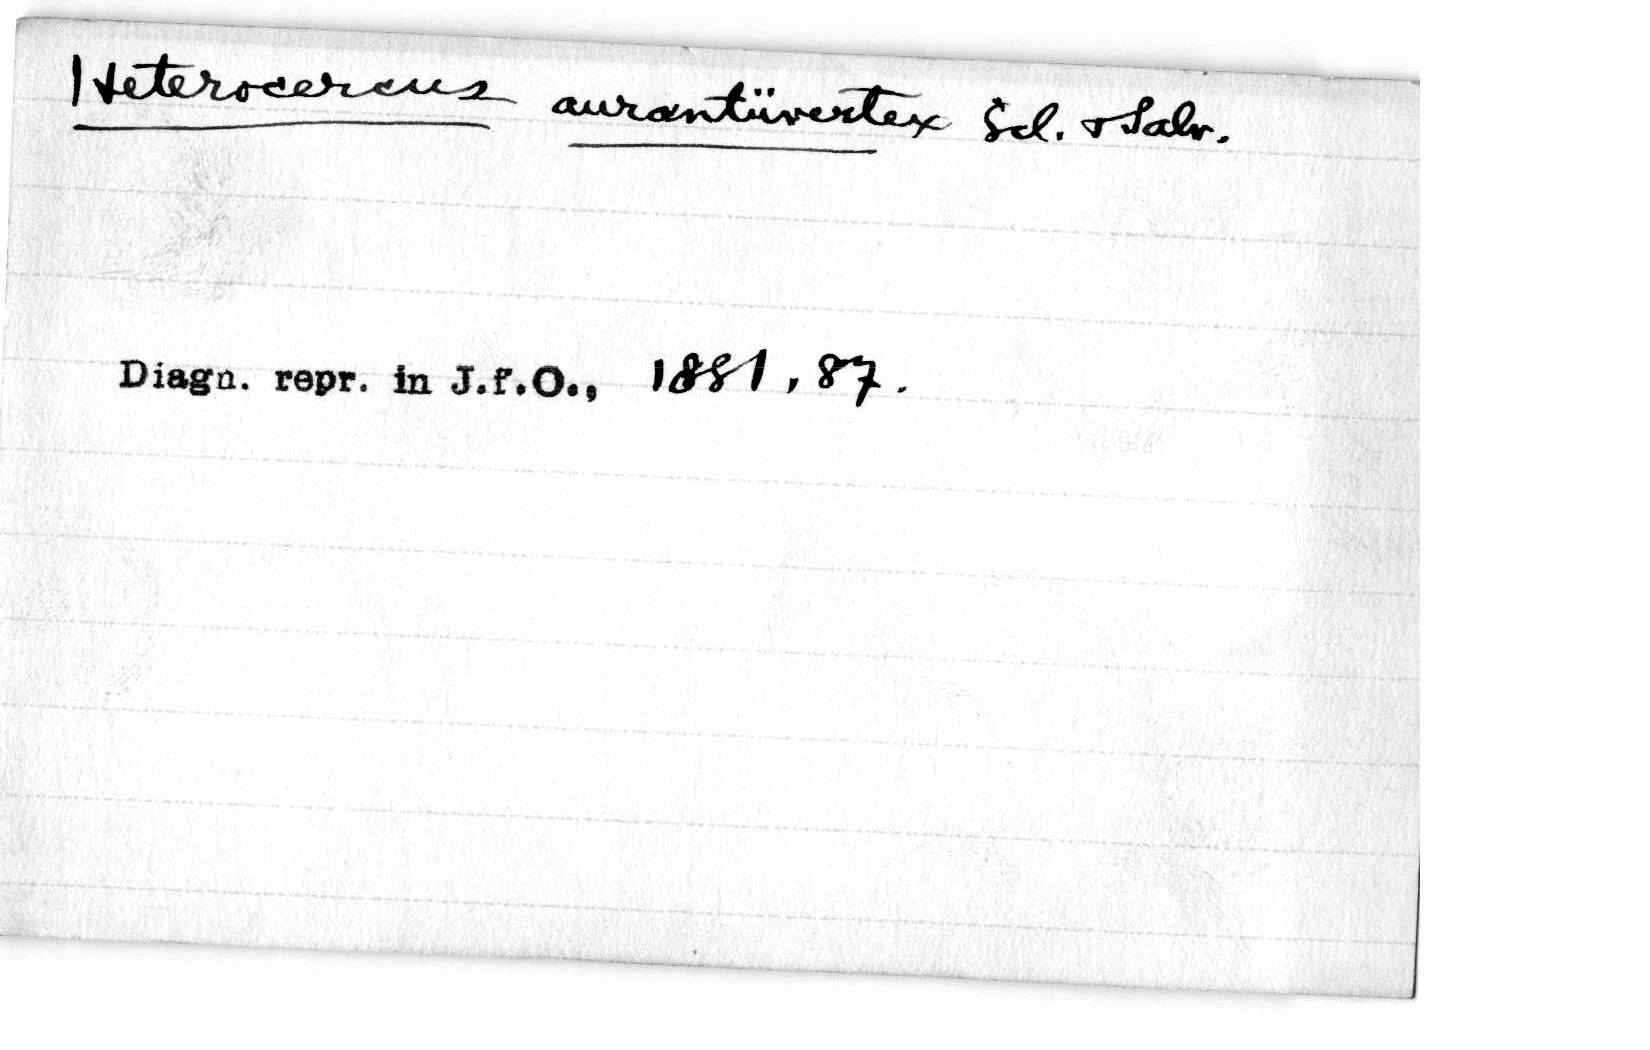 Heterocercus aurantiivertex Scl. & Salv.
Diagn. repr. in J.f.O., 1881, 87.